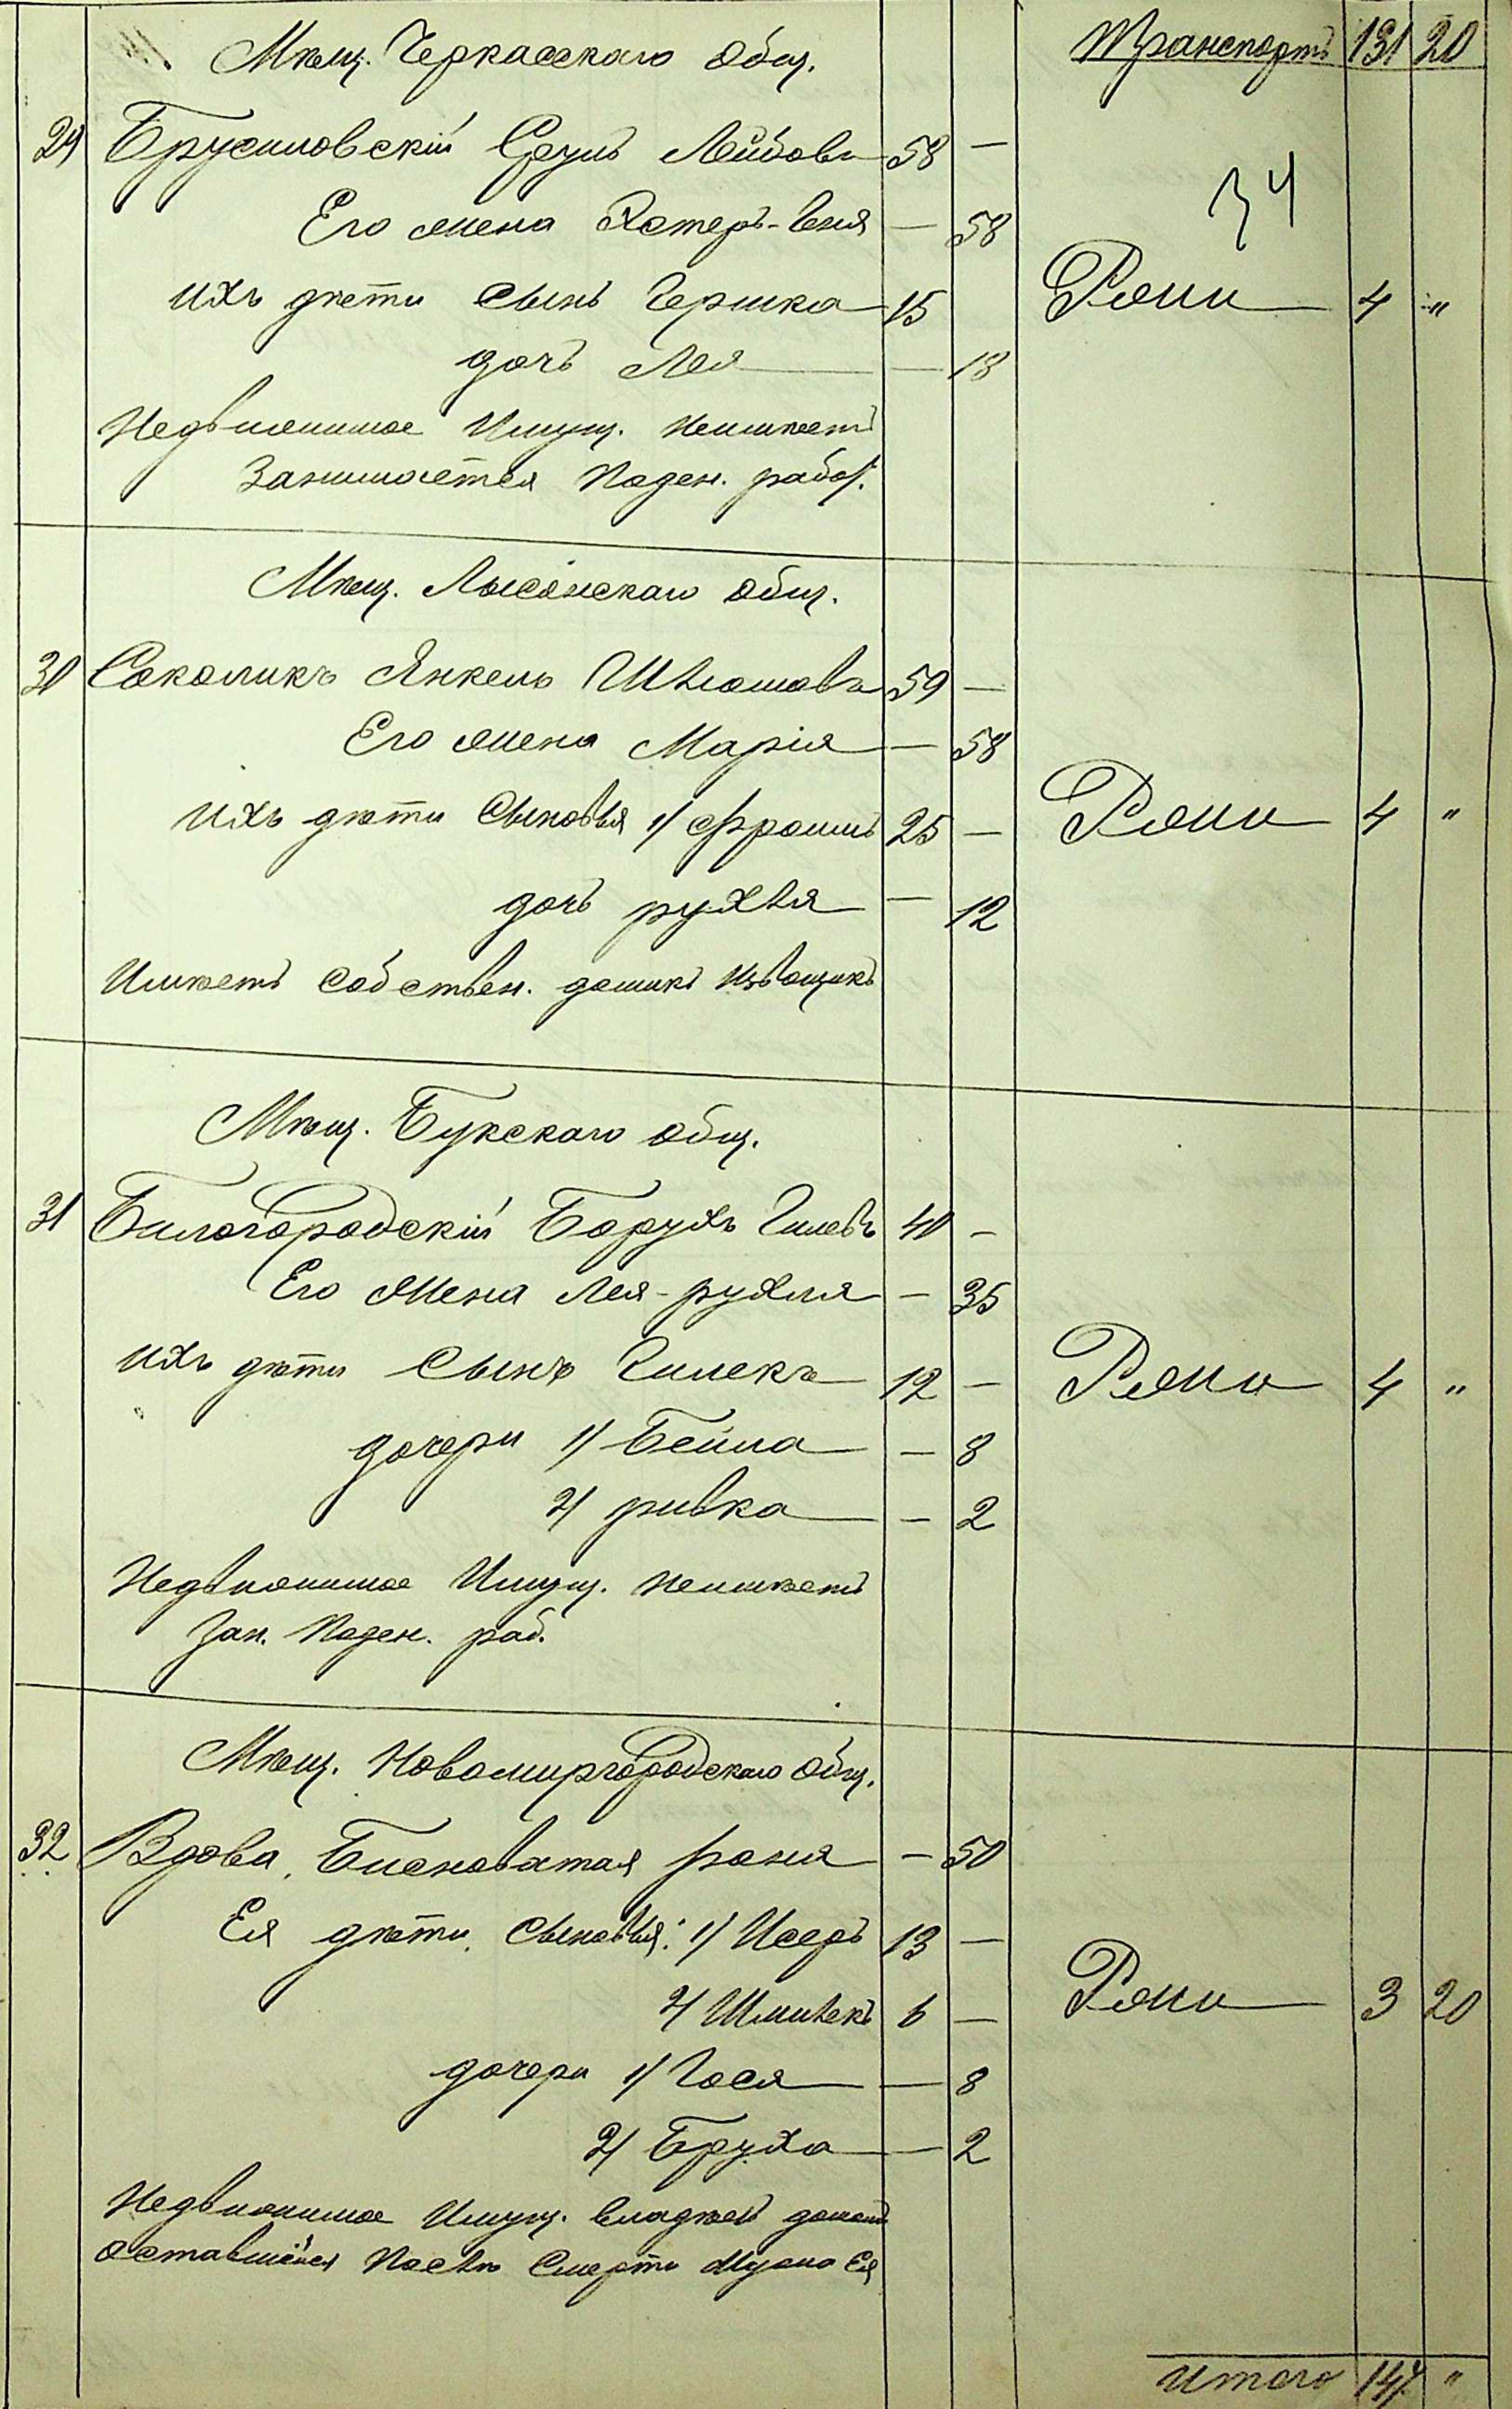 Мѣщ. Черкасскаго Общ. Транспортъ 131 20
29 Брусиловскій Сруль Лейбовъ 58 —
34
Его жена Эстеръ-Геня — 58
Ихъ дѣти Сынъ Гершко 15 Рени 4 "
дочь Лея — 18
Недвижимое Имущ. Неимѣетъ
Занимается Поден. работ.
Мѣщ. Лысянскаго Общ.
30 Соколикъ Янкель Шлiомовъ 59 —
Его жена Марія — 58
Ихъ дѣти Сыновья 1/ Фроимъ 25 — Рени 4 "
дочь рухля — 12
Имѣетъ Собствен. домикъ Извощикъ
Мѣщ. Букскаго Общ.
31 Билогородскій Борухъ Гилевъ 40 —
Его жена Лея-рухля — 35
Ихъ дѣти Сынъ Гилекъ 12 — Рени 4 "
дочери 1/ Бейла — 8
2/ ривка — 2
Недвижимое Имущ. Неимѣетъ
Зан. Поден. раб.
Мѣщ. Новомиргородскаго Общ.
32 Вдова Бисноватая роня — 50
Ея дѣти Сыновья: 1/ Исеръ 13 —
2/ Шмилекъ 6 — Рени 3 20
дочери 1/ Гося — 8
2/ Бруха — 2
Недвижимое Имущ. владѣетъ домомъ
оставшійся Послѣ Смерти Мужа Ея
Итого 147 "